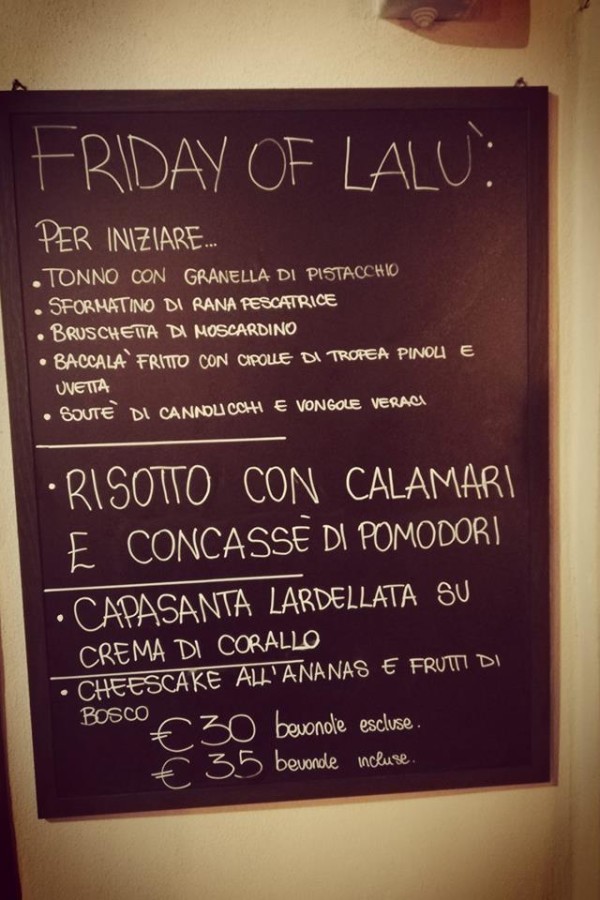 FRIDAY OF LALÙ:
PER INIZIARE...
• TONNO CON GRANELLA DI PISTACCHIO
• SFORMATINO DI RANA PESCATRICE
• BRUSCHETTA DI MOSCARDINO
• BACCALA' FRITTO CON CIPOLLE DI TROPEA PINOLI E
UVETTA
• SOUTÈ DI CANNOLICCHI E VONGOLE VERACI
• RISOTTO CON CALAMARI
E CONCASSÈ DI POMODORI
• CAPASANTA LARDELLATA SU
CREMA DI CORALLO
• CHEESCAKE ALL'ANANAS E FRUTTI DI
BOSCO
€ 30 bevande escluse.
€ 35 bevande incluse.